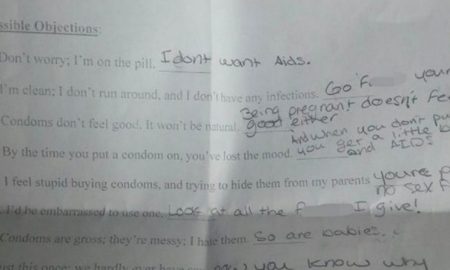 ssible Objections:
Don't worry; I'm on the pill. I dont want Aids.
I'm clean; I don't run around, and I don't have any infections. Go F your
Condoms don't feel good. It won't be natural. Being pregnant doesn't fe
good either
By the time you put a condom on, you've lost the mood. And when you don't pu
you get a little b
and AIDS
I feel stupid buying condoms, and trying to hide them from my parents youre p
no sex f
I'd be embarrassed to use one. Look at all the f I give!
Condoms are gross; they're messy; I hate them. So are babies.
just this once; we hardly ever have you know why